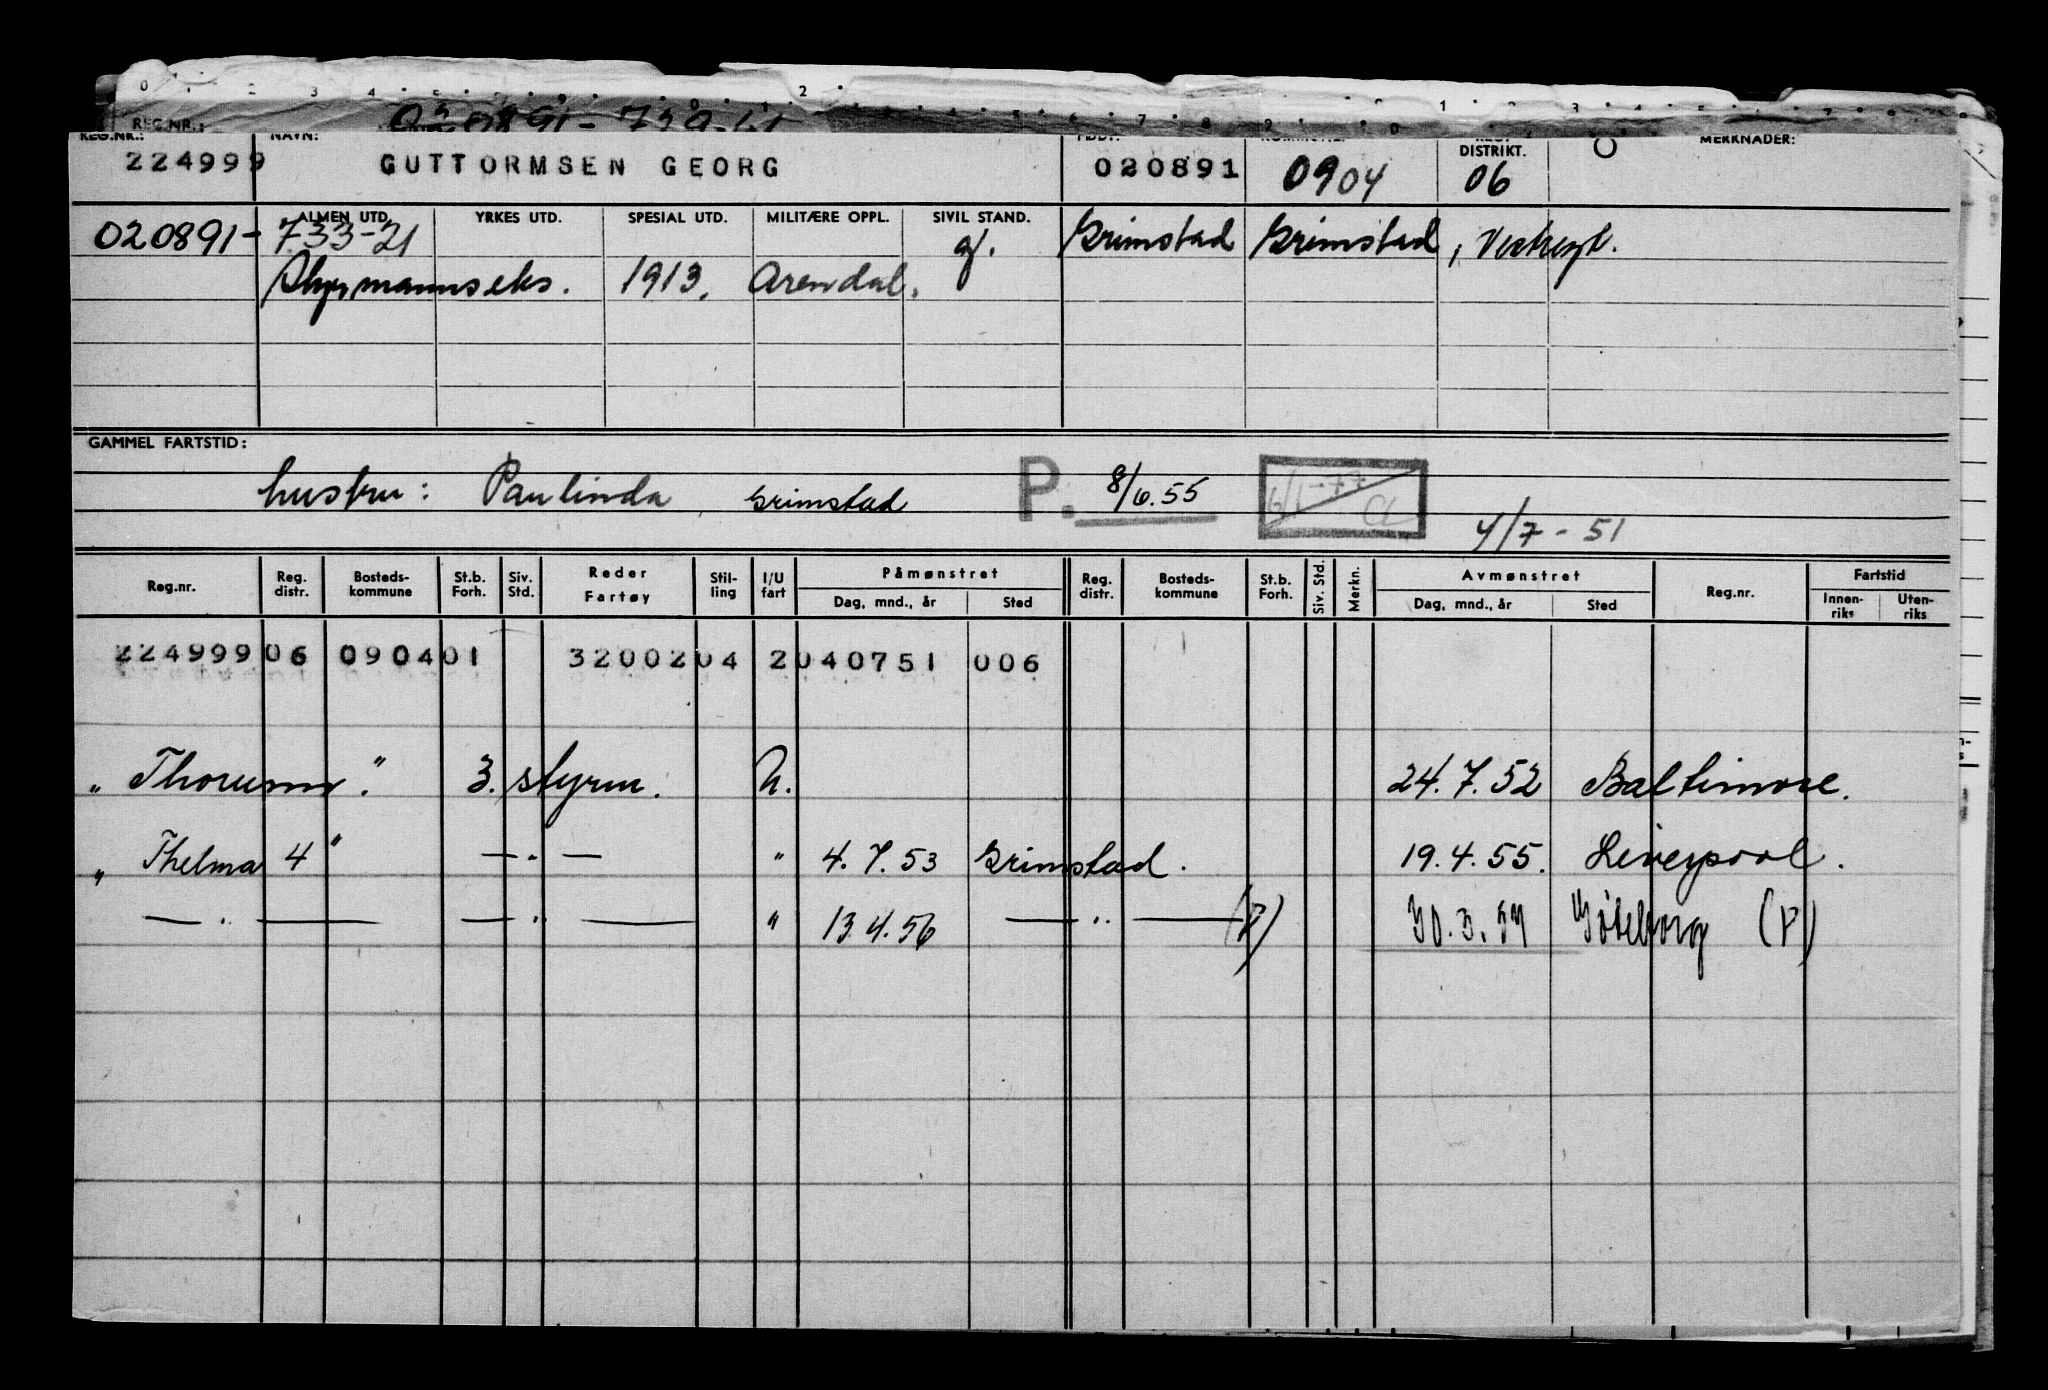 REG.NR.: 020891-
REG.NR.: NAVN: DISTRIKT. MERKNADER:
224999 GUTTORMSEN GEORG 020891 0904 06
ALMEN UTD. YRKES UTD. SPESIAL UTD. MILITÆRE OPPL. SIVIL STAND.
020891- 733-21 g. Grimstad Grimstad,
Styrmannseks. 1913. Arendal.
GAMMEL FARTSTID:
hustru: Paulinda, Grimstad P. 8/6.55
4/7-51
Reg.nr. Reg. distr. Bosteds-kommune St.b. Forh. Siv. Std. Reder Fartøy Stil-ling I/U fart Påmønstret Reg. distr. Bosteds-kommune St.b. Forh. Siv. Std. Merkn. Avmønstret Reg.nr. Fartstid
Dag, mnd., år Sted Dag, mnd., år Sted Innen-riks Uten-riks
224999 06 0904 01 320020 4 2 040751 006
" ". 3. styrm. U. 24.7.52 Baltimore.
" Thelma 4" — " — " 4.7.53 Grimstad. 19.4.55. Liverpool.
— " — — " — " 13.4.56 — " — (P) Göteborg (P)